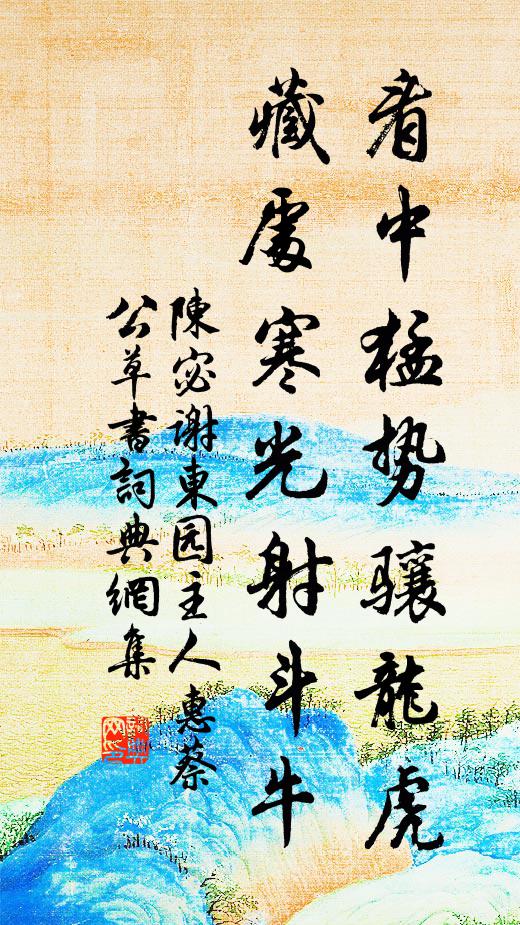 看中猛势骧龍虎
藏處寒光射斗牛
陳宓谢東园主人惠蔡
公草書詞典網集